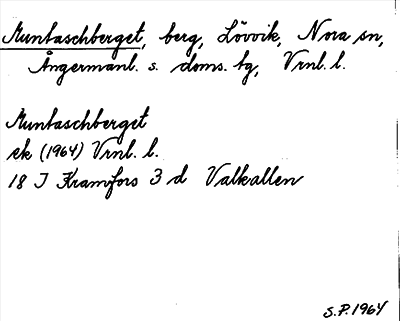 Muntaschberget, berg, Lövvik, Nora sn,
Ångermanl. s. doms. tg, Vrnl. l.
Muntaschberget
ek (1964) Vrnl. l.
18 I Kramfors 3 d Valkallen
S.P. 1964